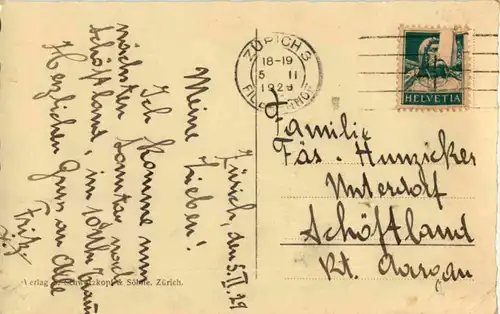 Zürich, den 5. II. 29
Meine Lieben!
Ich komme nun
nächsten Sonntag nach
Schöftland, im
Herzlichen Gruss an Alle
Fritz.
ZÜRICH 3
18-19
5 II
1929
HELVETIA
Familie
Fäs-Hunzicker
Unterdorf
Schöftland
Kt. Aargau
Verlag Schwarzkopf & Söhne, Zürich.